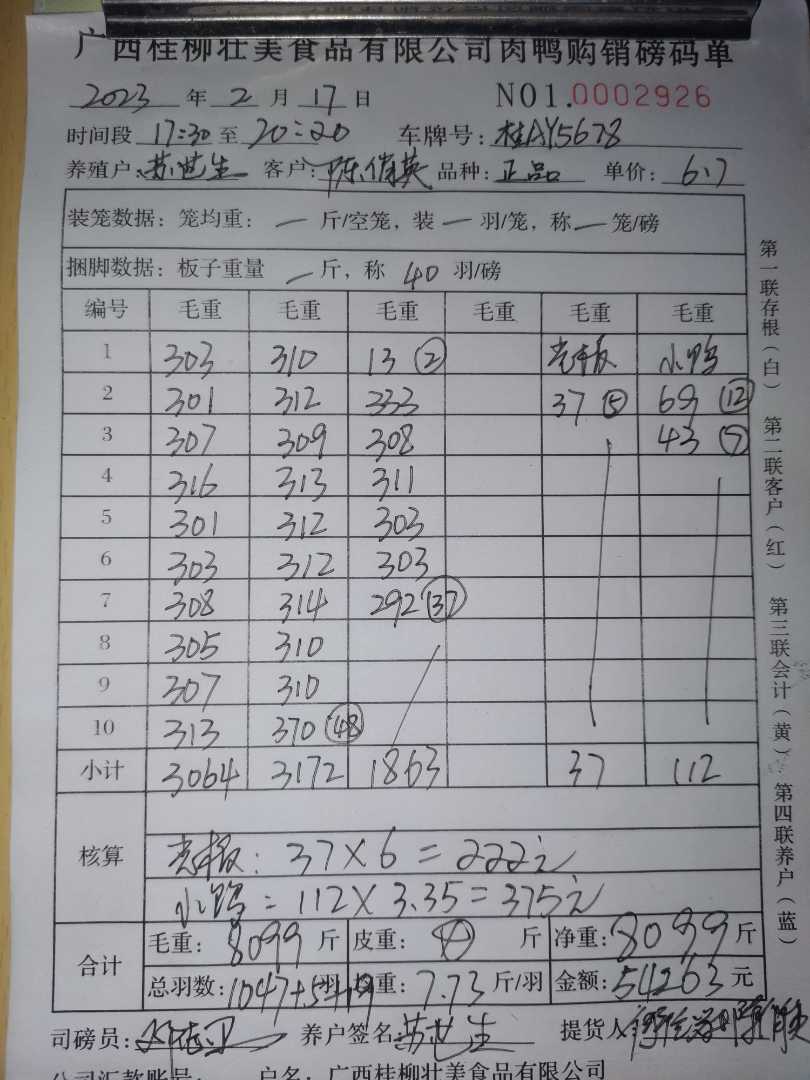 广西桂柳壮美食品有限公司肉鸭购销磅码单
2023 年 2 月 17 日 NO1.0002926
时间段 17:30 至 20:20 车牌号: 桂AY5678
养殖户: 苏世生 客户: 陈俏英 品种: 正品 单价: 6.7
装笼数据: 笼均重: 一 斤/空笼, 装 一 羽/笼, 称 一 笼/磅
捆脚数据: 板子重量 一 斤, 称 40 羽/磅
编号 毛重 毛重 毛重 毛重 毛重 毛重
1 303 310 13 ② 光板 小鸭
2 301 312 333 37 ⑤ 69 ⑫
3 307 309 308 43 ⑦
4 316 313 311
5 301 312 303
6 303 312 303
7 308 314 292 ㊲
8 305 310
9 307 310
10 313 370 ㊽
小计 3064 3172 1863 37 112
核算
光板: 37×6=222元
小鸭=112×3.35=375元
合计
毛重: 8099 斤 皮重: 斤 净重: 8099 斤
总羽数: 1047+5+19 重: 7.73 斤/羽 金额: 54263 元
司磅员: 养户签名 苏世生 提货人
公司汇款账号: 户名: 广西桂柳壮美食品有限公司
第一联存根(白) 第二联客户(红) 第三联会计(黄) 第四联养户(蓝)